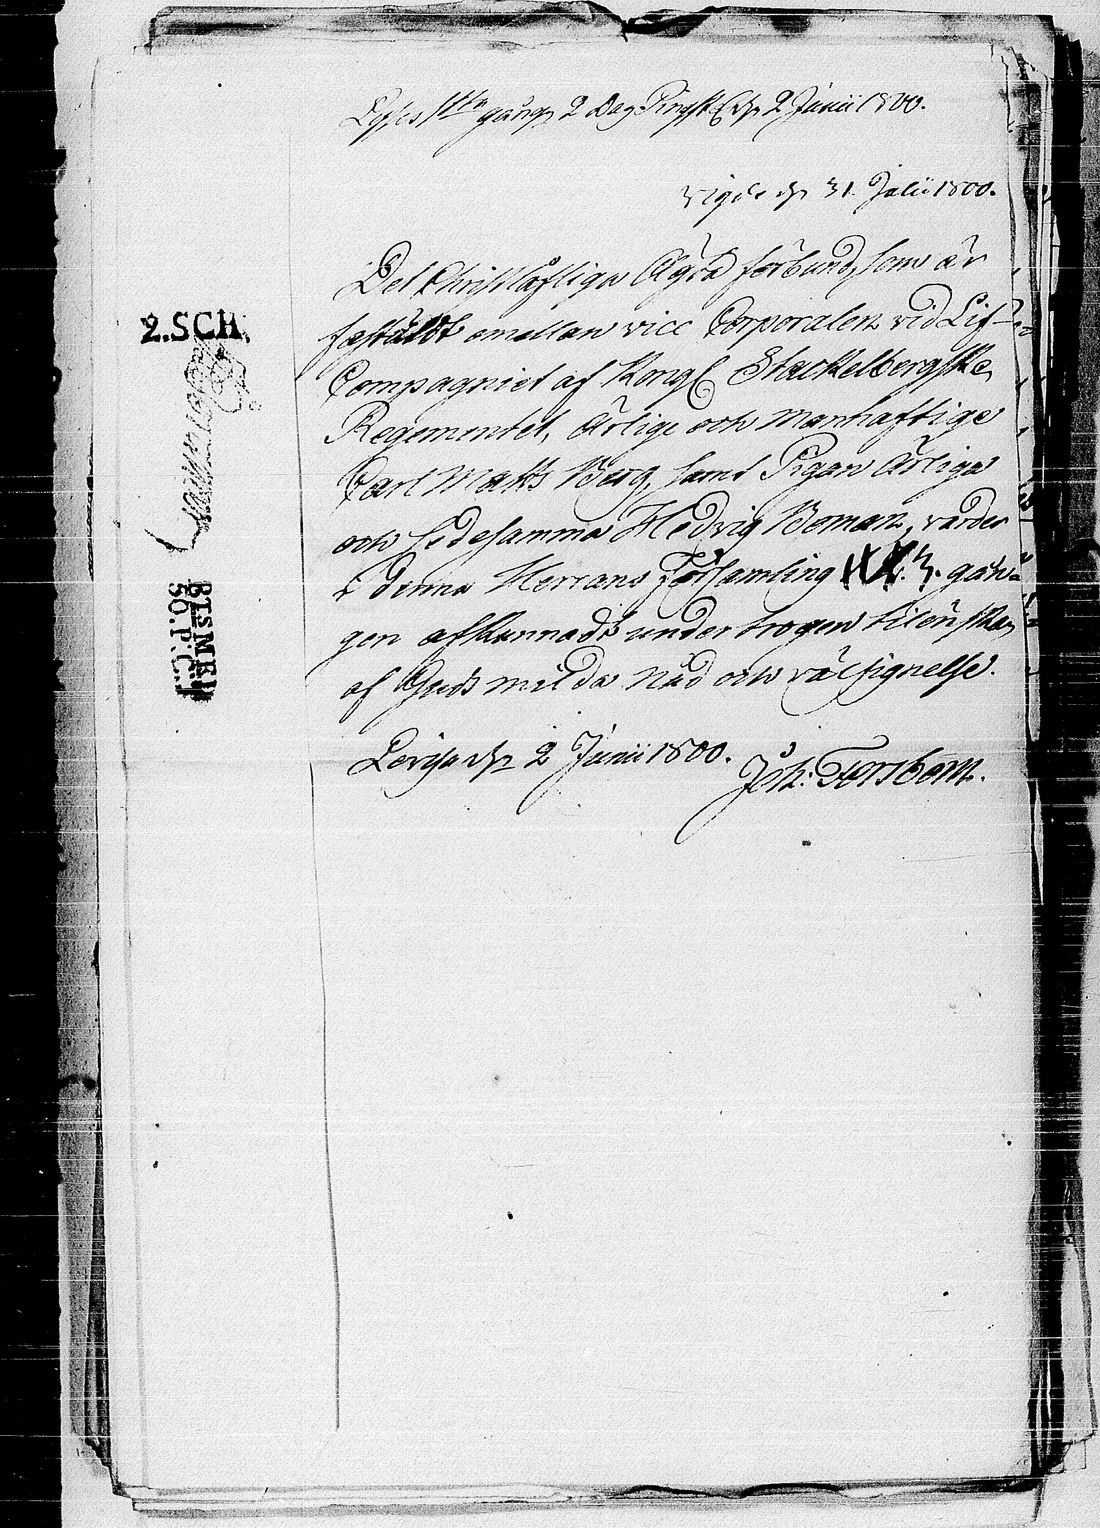 Lyses 1sta gång 2 Dag Pingst d. 2 Junii 1800.
vigde d. 31 Julii 1800.
Det Christlåfliga Ägta förbund, som är
fastäldt emellan vice Corporalen vid Lif-
Compagniet af Kongl Stackelbergske
Regementet, Ärlige och manhaftige
Carl Matts Berg, samt Pigan Ärliga
och sedesamma Hedvig Boman, varder
i denna Herrans Församling 3. gån-
gen afkunnadt under trogen tilönskan
af Guds milda Nåd och välsignelse.
Lovisa d. 2 Junii 1800.
Joh: Forsbom.
2.SCH.